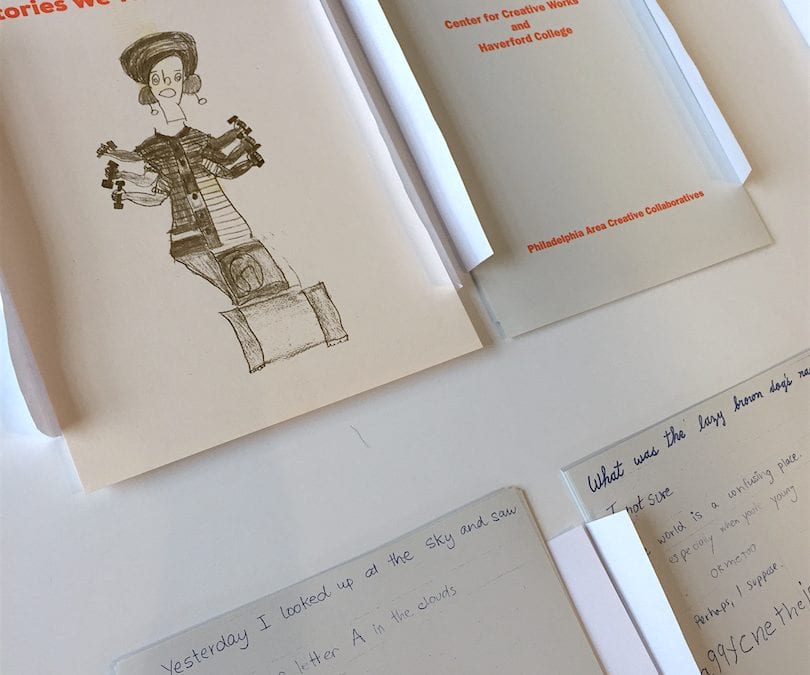 tories We
Center for Creative Works
and
Haverford College
Philadelphia Area Creative Collaboratives
Yesterday I looked up at the sky and saw
letter A in the clouds
What was the lazy brown dog's na
I not sure
world is a confusing place.
especially when you're young
OK me too
Perhaps, I suppose.